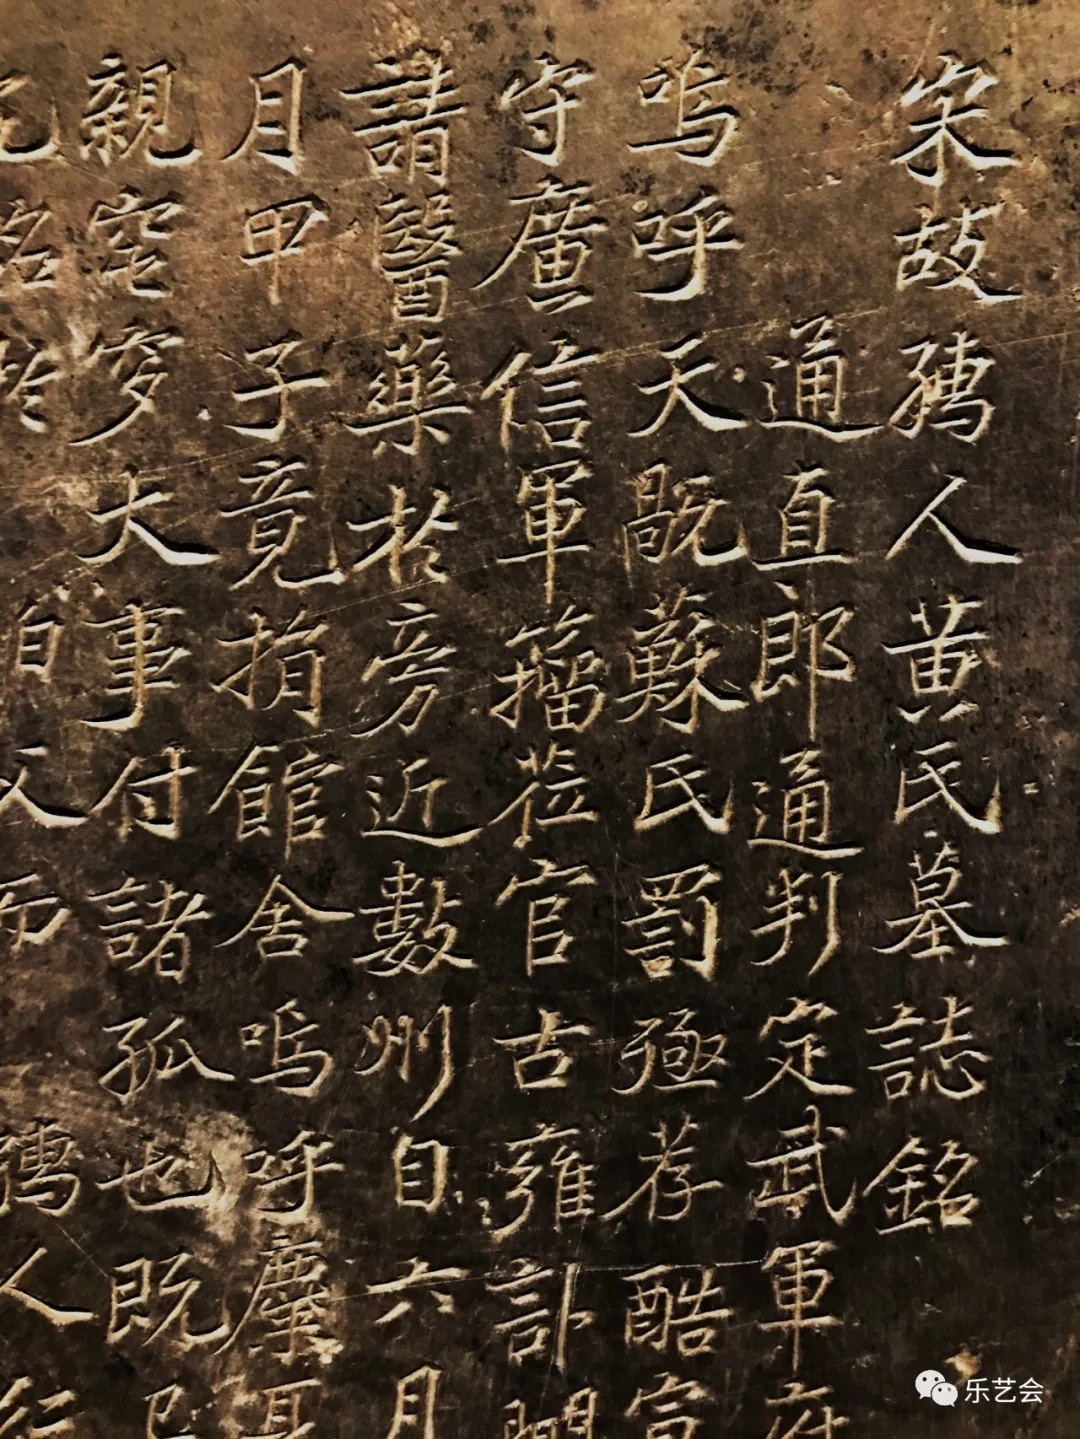 宋故孺人黄氏墓誌銘
通直郎通判定武軍府
嗚呼天既蘇氏罰極荐酷宣
守廣信軍籀莅官古雍訃聞
諸醫藥於旁近數州自六月
月甲子竟捐館舍嗚呼
親空穸大事付諸孤也既已
自入而孺人
乐艺会